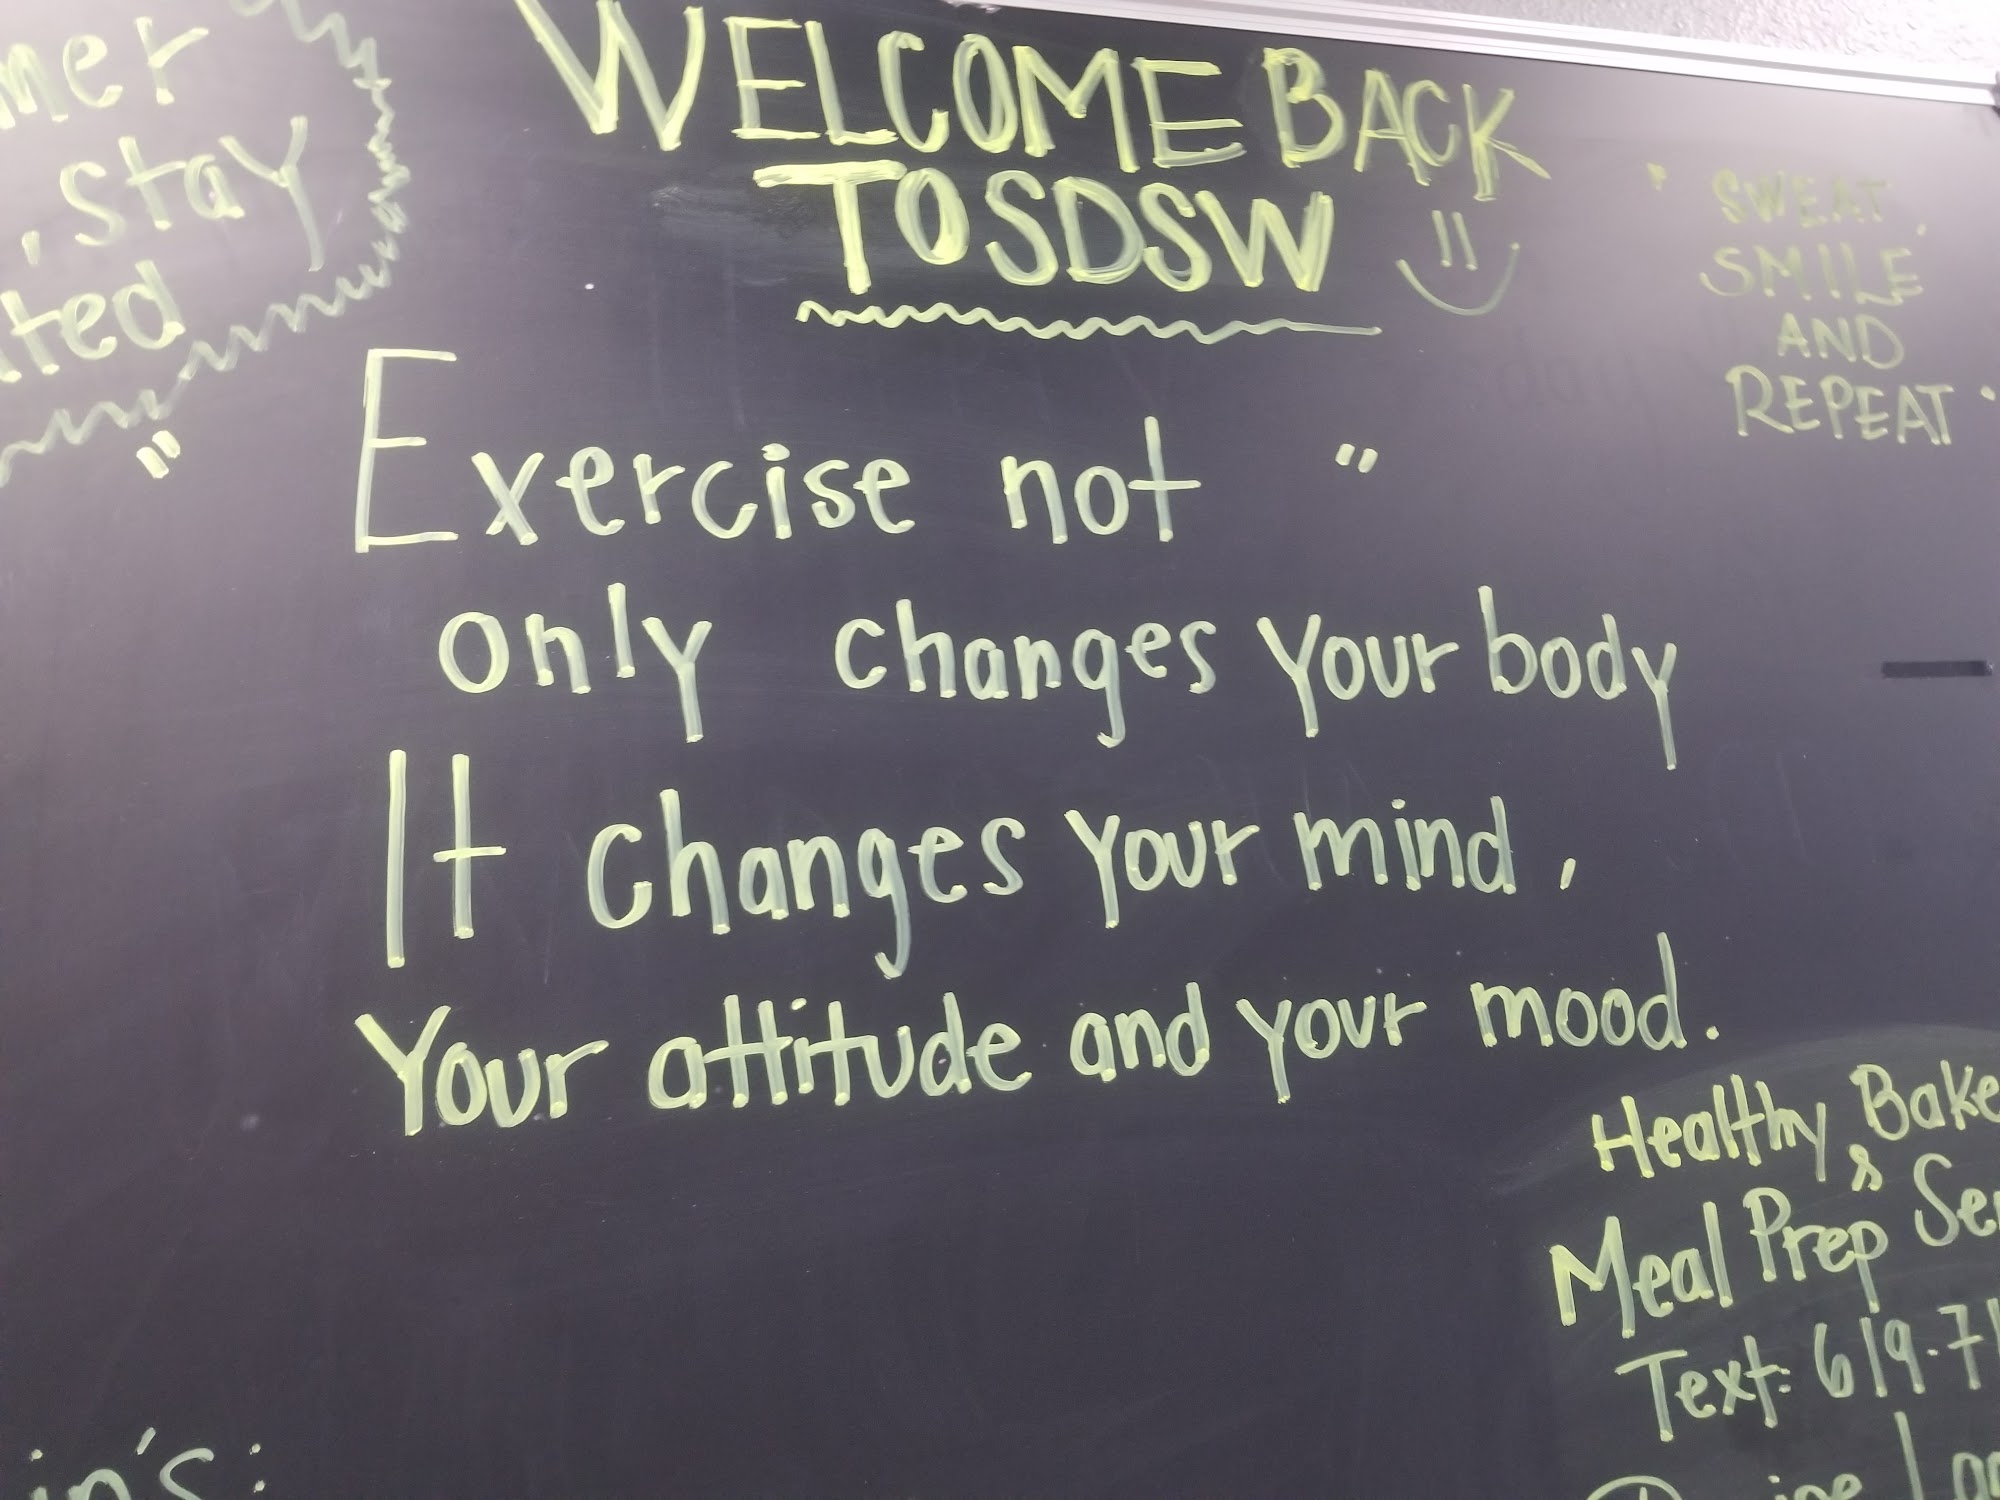 WELCOME BACK
TO SDSW
, stay
" SWEAT,
SMILE
AND
REPEAT "
" Exercise not "
only changes your body
It changes your mind,
Your attitude and your mood.
Healthy
&
Meal Prep
Text: 619-71